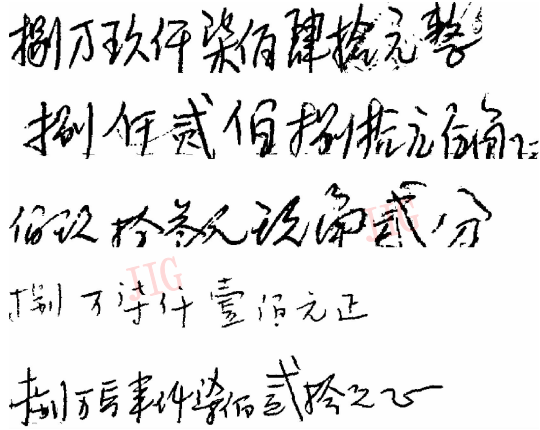 捌万玖仟柒佰肆拾元整
捌仟贰佰捌拾元伍角正
佰玖拾叁元玖角贰分
捌万柒仟壹佰元正
捌万肆仟柒佰贰拾元正
JIG
JIG